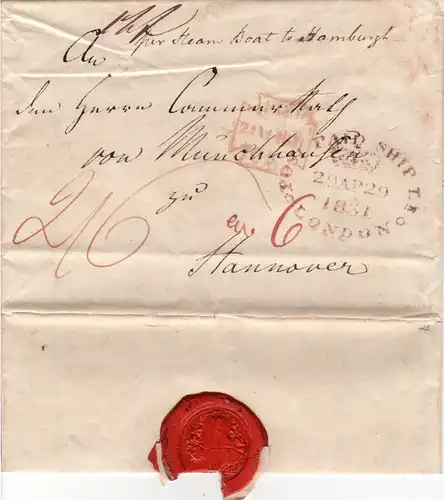 per Steam Boat to Hamburgh
An
den Herrn Cammer Rath
von Münchhausen
zu
Hannover
2/6
6
PAID SHIP LR
29 AP 29
1831
LONDON